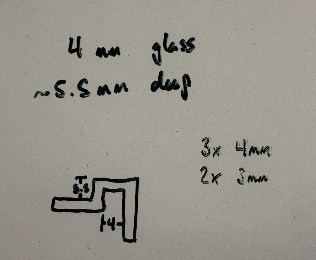 4 mm glass
~5.5mm deep
3x 4mm
2x 3mm
5.5
4